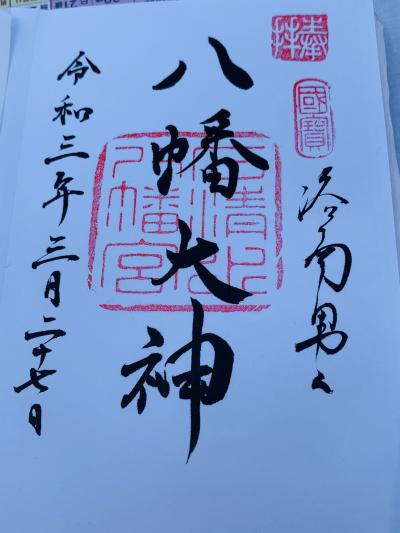 奉拝
國寶
洛南男山
八幡大神
石清水八幡宮
令和三年三月二十七日